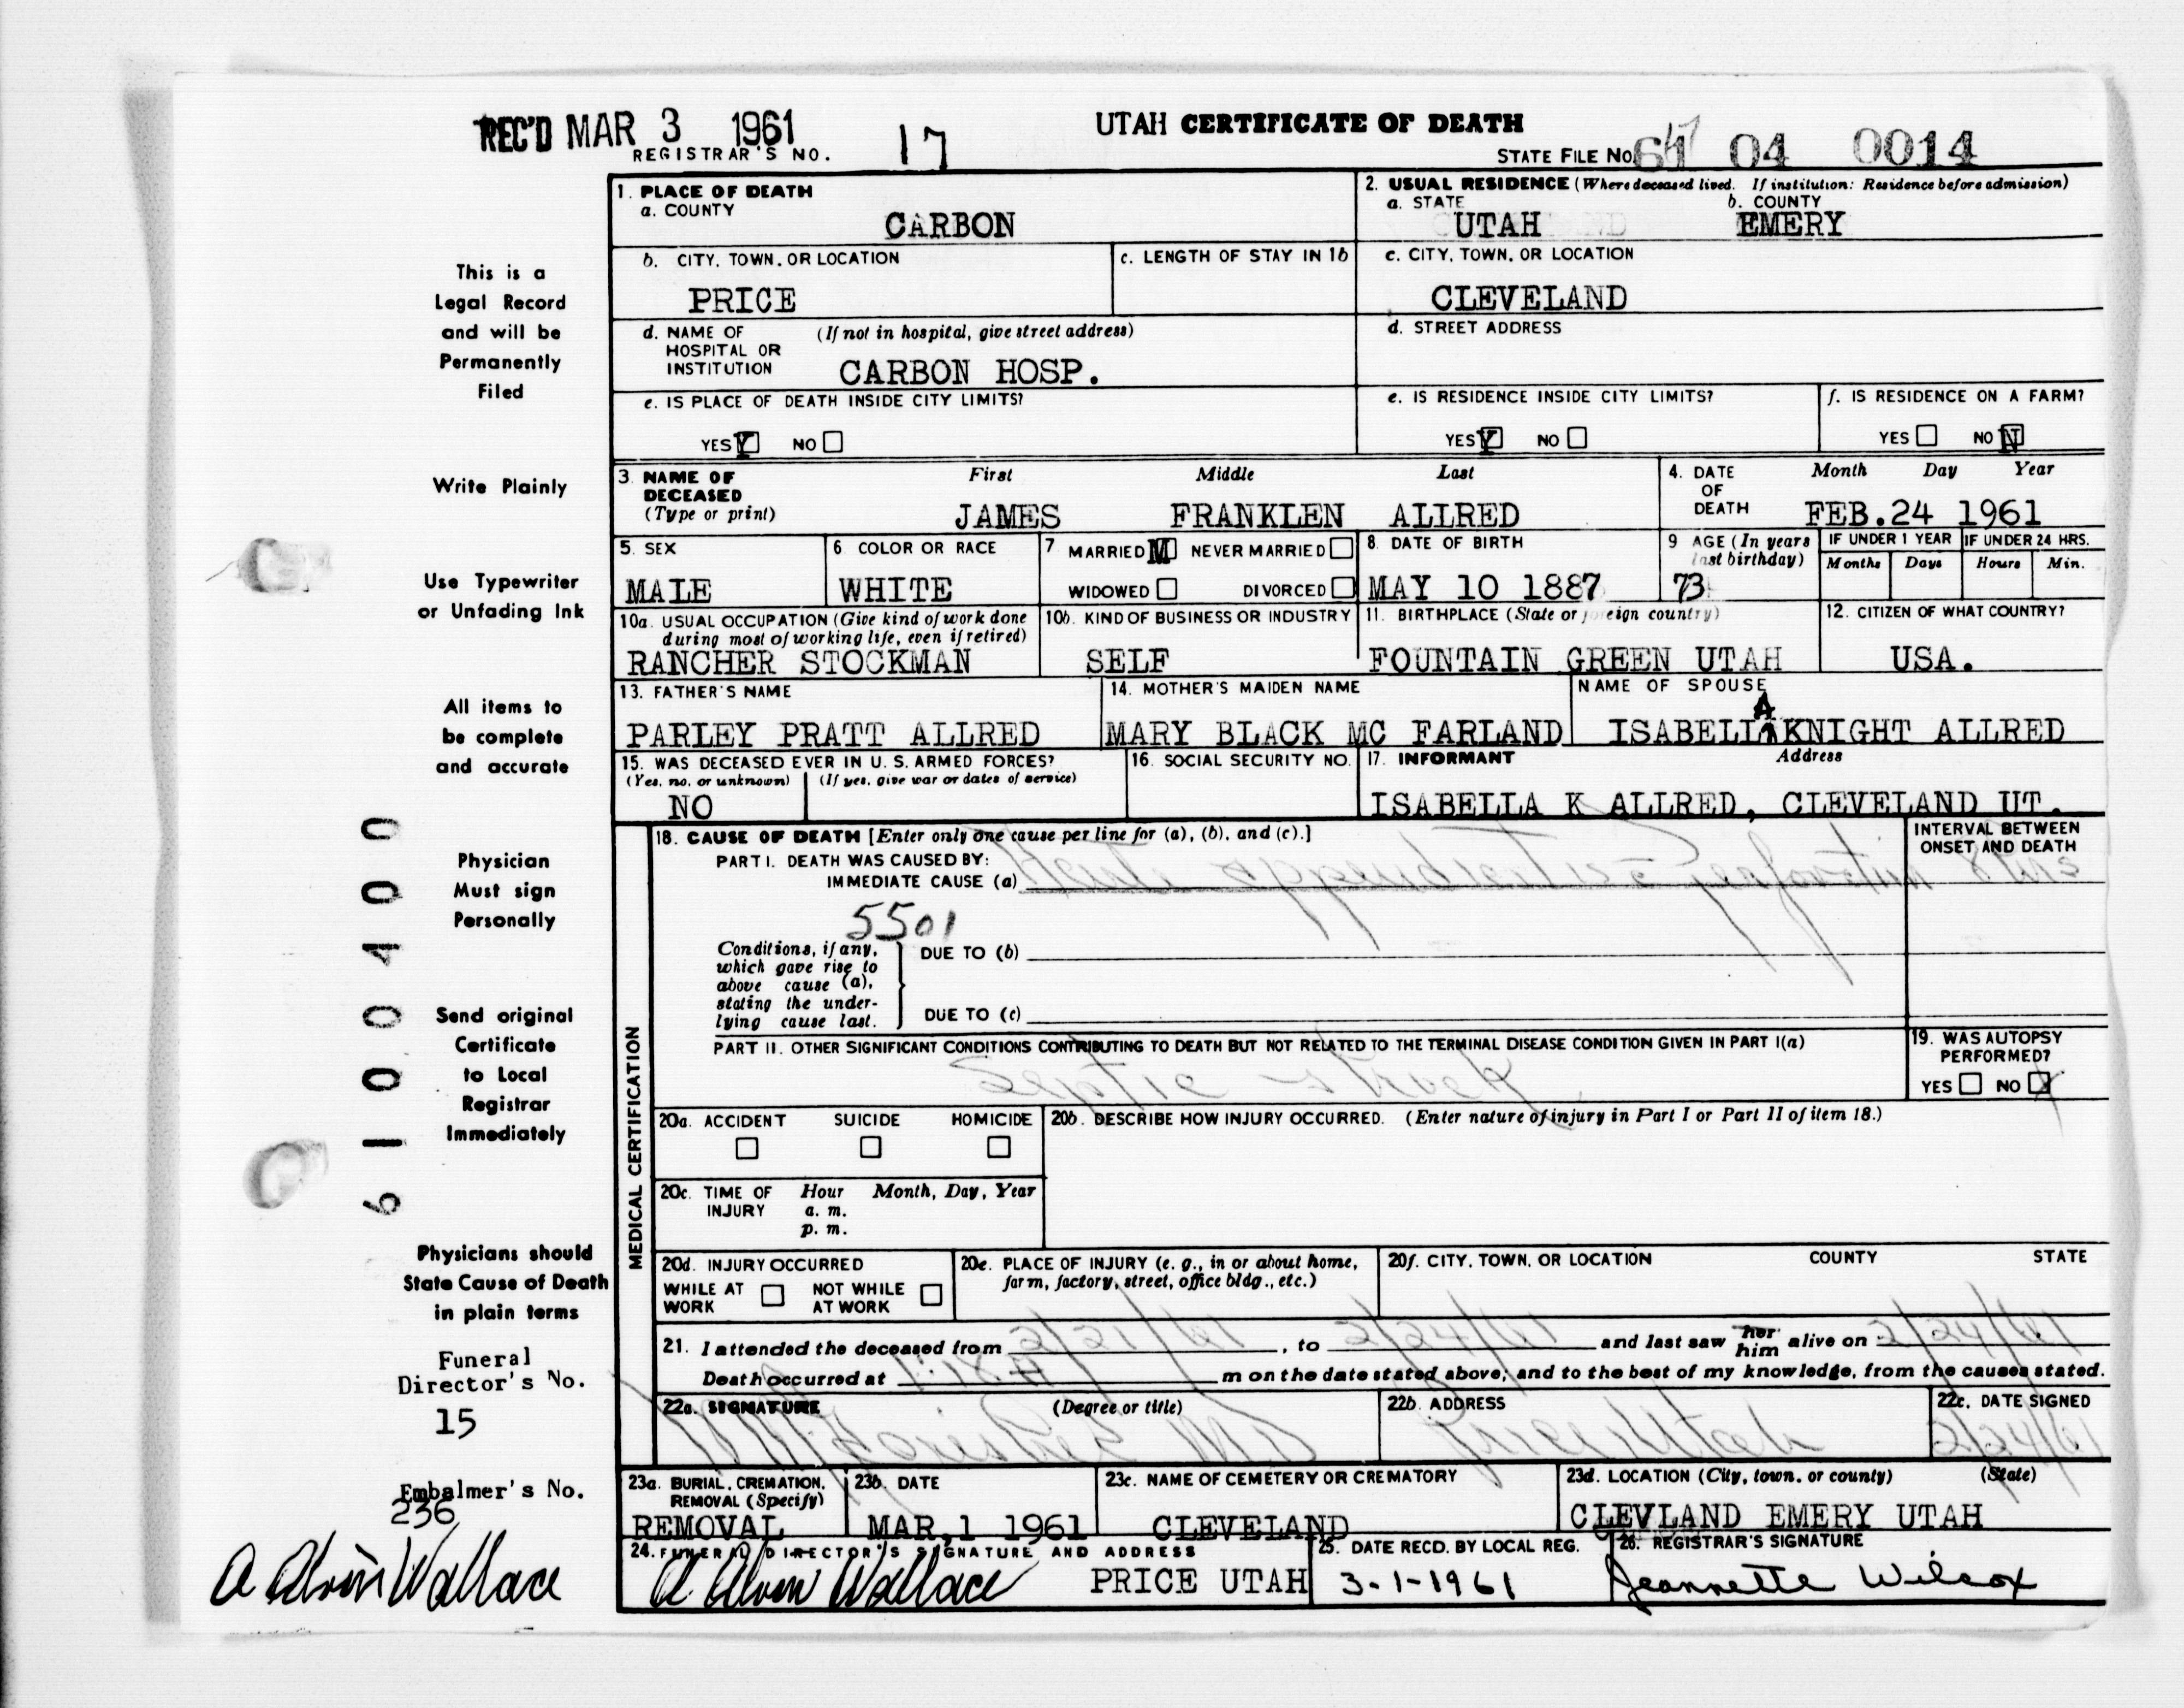 REC'D MAR 3 1961
REGISTRAR'S NO. 17
UTAH CERTIFICATE OF DEATH
STATE FILE NO. 61 04 0014
This is a
Legal Record
and will be
Permanently
Filed
Write Plainly
Use Typewriter
or Unfading Ink
All items to
be complete
and accurate
Physician
Must sign
Personally
Send original
Certificate
to Local
Registrar
Immediately
Physicians should
State Cause of Death
in plain terms
Funeral
Director's No.
15
Embalmer's No.
236
A Alvin Wallace
6100400
1. PLACE OF DEATH
a. COUNTY
CARBON
b. CITY, TOWN, OR LOCATION
PRICE
c. LENGTH OF STAY IN 1b
d. NAME OF HOSPITAL OR INSTITUTION (If not in hospital, give street address)
CARBON HOSP.
e. IS PLACE OF DEATH INSIDE CITY LIMITS?
YES Y NO
2. USUAL RESIDENCE (Where deceased lived. If institution: Residence before admission)
a. STATE
UTAH
b. COUNTY
EMERY
c. CITY, TOWN, OR LOCATION
CLEVELAND
d. STREET ADDRESS
e. IS RESIDENCE INSIDE CITY LIMITS?
YES Y NO
f. IS RESIDENCE ON A FARM?
YES NO N
3. NAME OF DECEASED (Type or print)
First Middle Last
JAMES FRANKLEN ALLRED
4. DATE OF DEATH
Month Day Year
FEB.24 1961
5. SEX
MALE
6. COLOR OR RACE
WHITE
7. MARRIED M NEVER MARRIED
WIDOWED DIVORCED
8. DATE OF BIRTH
MAY 10 1887
9. AGE (In years last birthday)
73
IF UNDER 1 YEAR
Months Days
IF UNDER 24 HRS.
Hours Min.
10a. USUAL OCCUPATION (Give kind of work done during most of working life, even if retired)
RANCHER STOCKMAN
10b. KIND OF BUSINESS OR INDUSTRY
SELF
11. BIRTHPLACE (State or foreign country)
FOUNTAIN GREEN UTAH
12. CITIZEN OF WHAT COUNTRY?
USA.
13. FATHER'S NAME
PARLEY PRATT ALLRED
14. MOTHER'S MAIDEN NAME
MARY BLACK MC FARLAND
NAME OF SPOUSE
ISABELLA KNIGHT ALLRED
15. WAS DECEASED EVER IN U.S. ARMED FORCES?
(Yes, no, or unknown) (If yes, give war or dates of service)
NO
16. SOCIAL SECURITY NO.
17. INFORMANT Address
ISABELLA K ALLRED, CLEVELAND UT.
MEDICAL CERTIFICATION
18. CAUSE OF DEATH [Enter only one cause per line for (a), (b), and (c).]
PART I. DEATH WAS CAUSED BY:
IMMEDIATE CAUSE (a) Acute appendicitis c perforation
INTERVAL BETWEEN ONSET AND DEATH
5501
Conditions, if any, which gave rise to above cause (a), stating the underlying cause last.
DUE TO (b)
DUE TO (c)
PART II. OTHER SIGNIFICANT CONDITIONS CONTRIBUTING TO DEATH BUT NOT RELATED TO THE TERMINAL DISEASE CONDITION GIVEN IN PART I(a)
Septic shock
19. WAS AUTOPSY PERFORMED?
YES NO X
20a. ACCIDENT SUICIDE HOMICIDE
20b. DESCRIBE HOW INJURY OCCURRED. (Enter nature of injury in Part I or Part II of item 18.)
20c. TIME OF INJURY Hour Month, Day, Year
a. m.
p. m.
20d. INJURY OCCURRED
WHILE AT WORK NOT WHILE AT WORK
20e. PLACE OF INJURY (e. g., in or about home, farm, factory, street, office bldg., etc.)
20f. CITY, TOWN, OR LOCATION COUNTY STATE
21. I attended the deceased from 2/21/61, to 2/24/61 and last saw her him alive on 2/24/61
Death occurred at m on the date stated above; and to the best of my knowledge, from the causes stated.
22a. SIGNATURE (Degree or title)
MD
22b. ADDRESS
Price Utah
22c. DATE SIGNED
2/24/61
23a. BURIAL, CREMATION, REMOVAL (Specify)
REMOVAL
23b. DATE
MAR,1 1961
23c. NAME OF CEMETERY OR CREMATORY
CLEVELAND
23d. LOCATION (City, town, or county) (State)
CLEVLAND EMERY UTAH
24. FUNERAL DIRECTOR'S SIGNATURE AND ADDRESS
A Alvin Wallace PRICE UTAH
25. DATE RECD. BY LOCAL REG.
3-1-1961
26. REGISTRAR'S SIGNATURE
Jeannette Wilcox